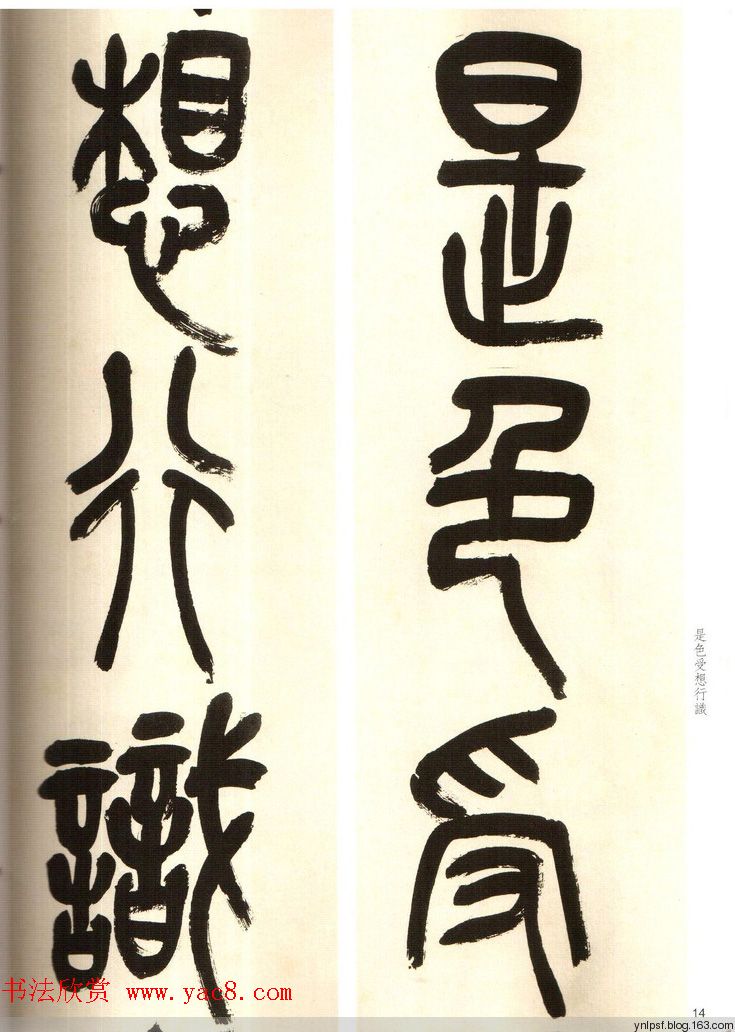 是色受
想行識
是色受想行識
书法欣赏 www.yac8.com
14
ynlpsf.blog.163.com